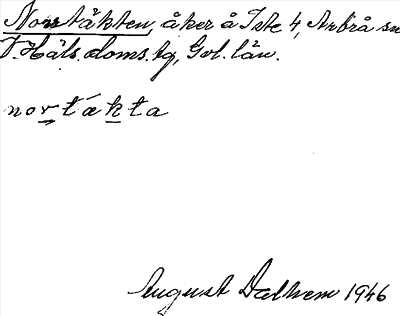 Norrtäkten, åker å Iste 4, Arbrå sn
V. Häls. doms. tg, Gvl. län.
nortäkta
August Dalhem 1946